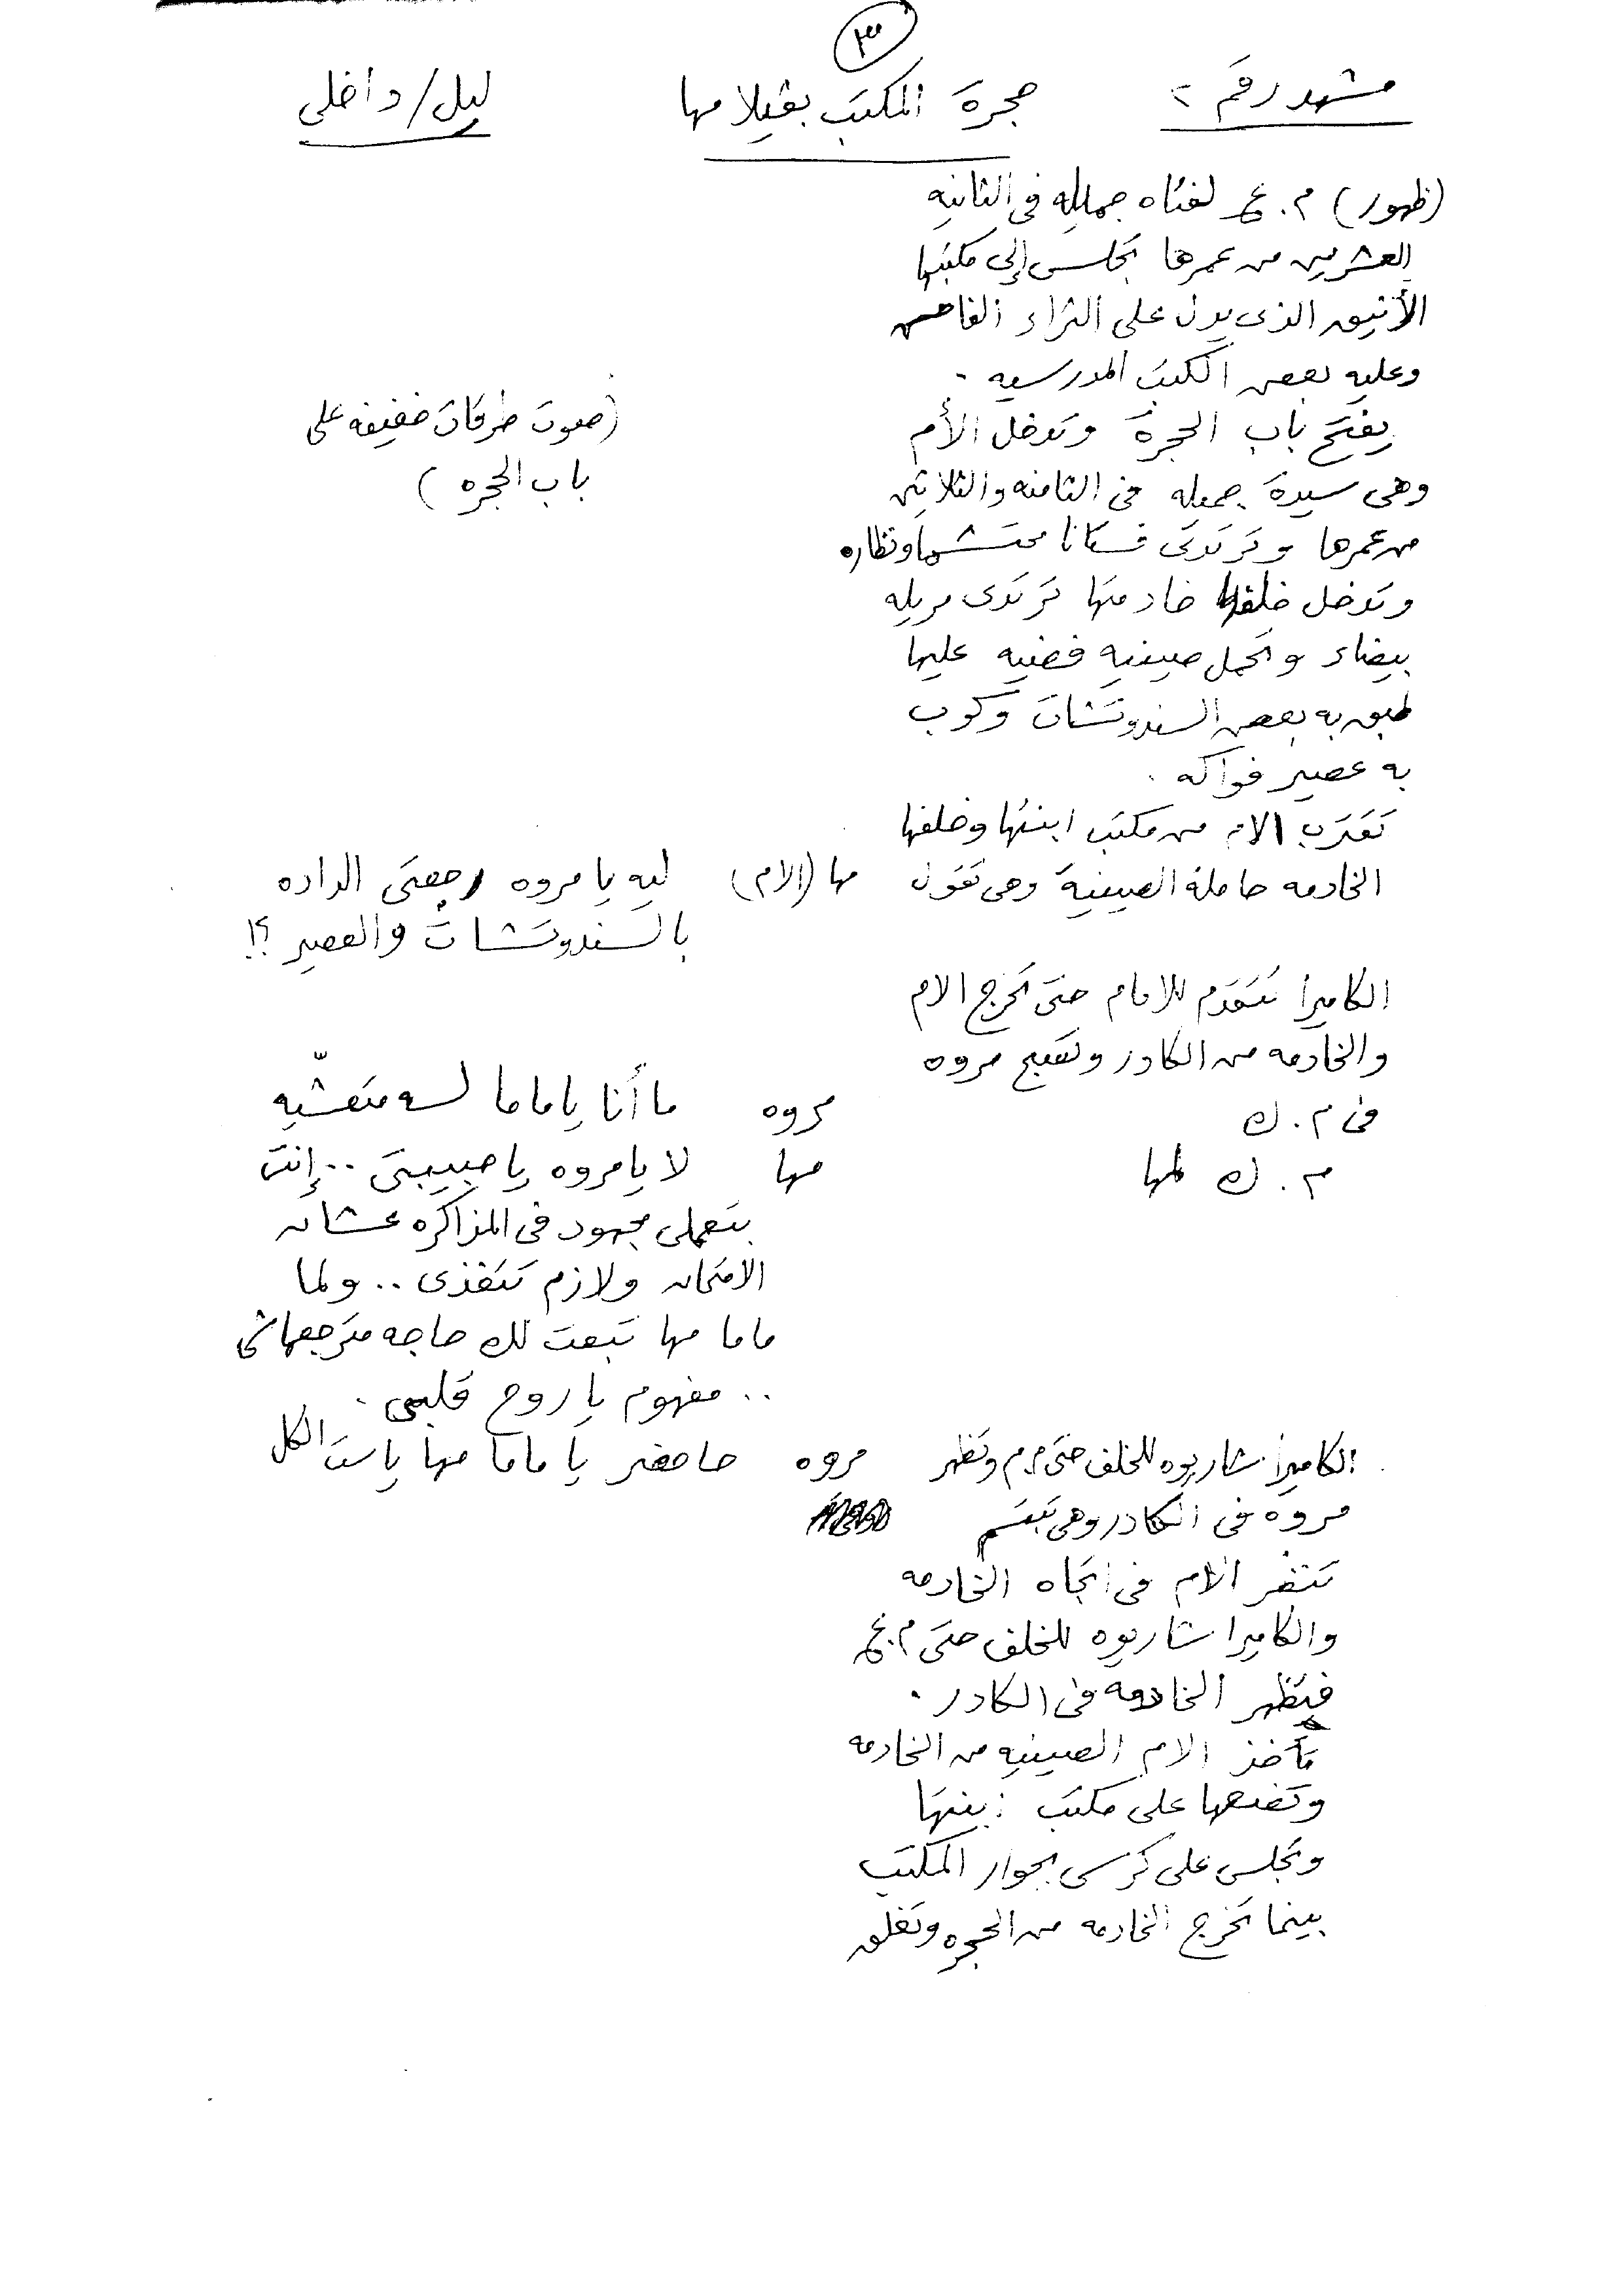 ٣
مشهد رقم ٢ حجرة المكتب بڤيلا مها ليل/داخلى
(ظهور) م.ع لفتاه جميله فى الثانيه
العشرين من عمرها تجلس إلى مكتبها
الأنيق الذى يدل على الثراء الفاحش
وعليه بعض الكتب المدرسيه .
يفتح باب الحجرة وتدخل الأم
(صوت طرقات خفيفه على
باب الحجره)
وهى سيدة جميله فى الثامنه والثلاثين
من عمرها وترتدى فستانا محتشما ونظاره
وتدخل خلفها خادمتها ترتدى مريله
بيضاء وتحمل صينيه فضيه عليها
طبق به بعض السندوتشات وكوب
به عصير فواكه .
تقترب الام من مكتب ابنتها وخلفها
الخادمه حاملة الصينية وهى تقول
مها (الام) ليه يا مروه رجعتى الداده
بالسندوتشات والعصير ؟!
الكاميرا تتقدم للامام حتى تخرج الام
والخادمه من الكادر وتصبح مروه
فى م.ك
مروه ما أنا يا ماما لسه متعشّيه
م.ك لمها
مها لا يا مروه يا حبيبتى .. إنت
بتعملى مجهود فى المزاكره عشان
الامتحان ولازم تتغذى .. ولما
ماما مها تبعت لك حاجه مترجعهاش
.. مفهوم يا روح قلبى .
الكاميرا شاريوه للخلف حتى م.م وتظهر
مروه فى الكادر وهى تبتسم
مروه حاضر يا ماما مها يا ست الكل
تنظر الام فى اتجاه الخادمه
والكاميرا شاريوه للخلف حتى م.ع
فتظهر الخادمه فى الكادر .
تأخذ الام الصينيه من الخادمه
وتضعها على مكتب ابنتها
وتجلس على كرسى بجوار المكتب
بينما تخرج الخادمه من الحجره وتغلق